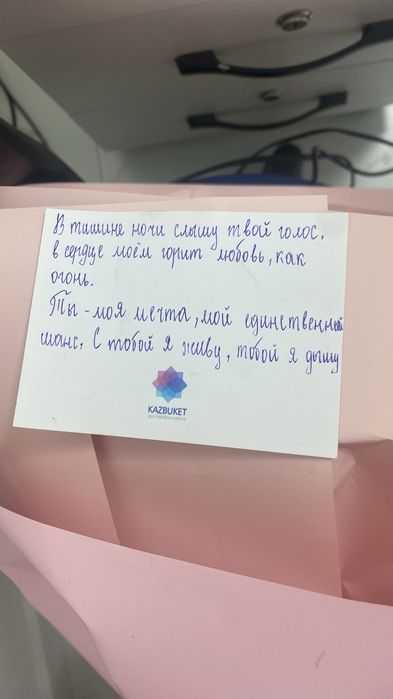 В тишине ночи слышу твой голос,
в сердце моём горит любовь, как
огонь.
Ты - моя мечта, мой единственный
шанс. С тобой я живу, тобой я дышу
KAZBUKET